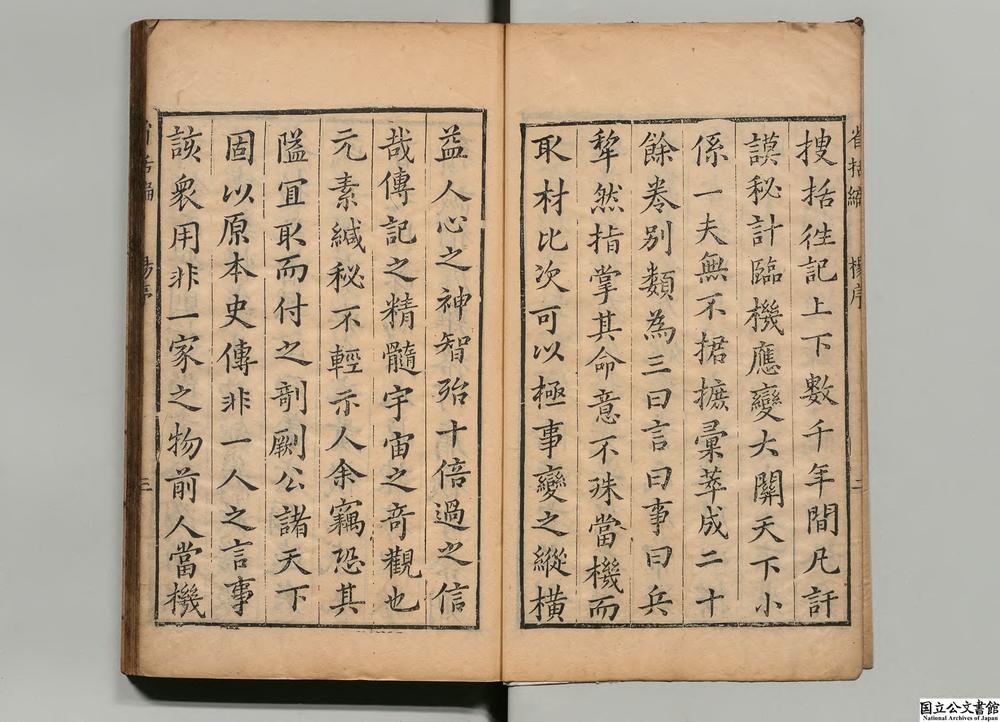 省括編 楊序 二
搜括徃記上下數千年間凡訏
謨秘計臨機應變大關天下小
係一夫無不捃摭彙萃成二十
餘卷别類為三曰言曰事曰兵
犂然指掌其命意不殊當機而
取材比次可以極事變之縱橫
益人心之神智殆十倍過之信
哉傳記之精髓宇宙之竒觀也
元素緘秘不輕示人余竊恐其
隘宜取而付之剞劂公諸天下
固以原本史傳非一人之言事
該衆用非一家之物前人當機
省括編 楊序 三
国立公文書館
National Archives of Japan